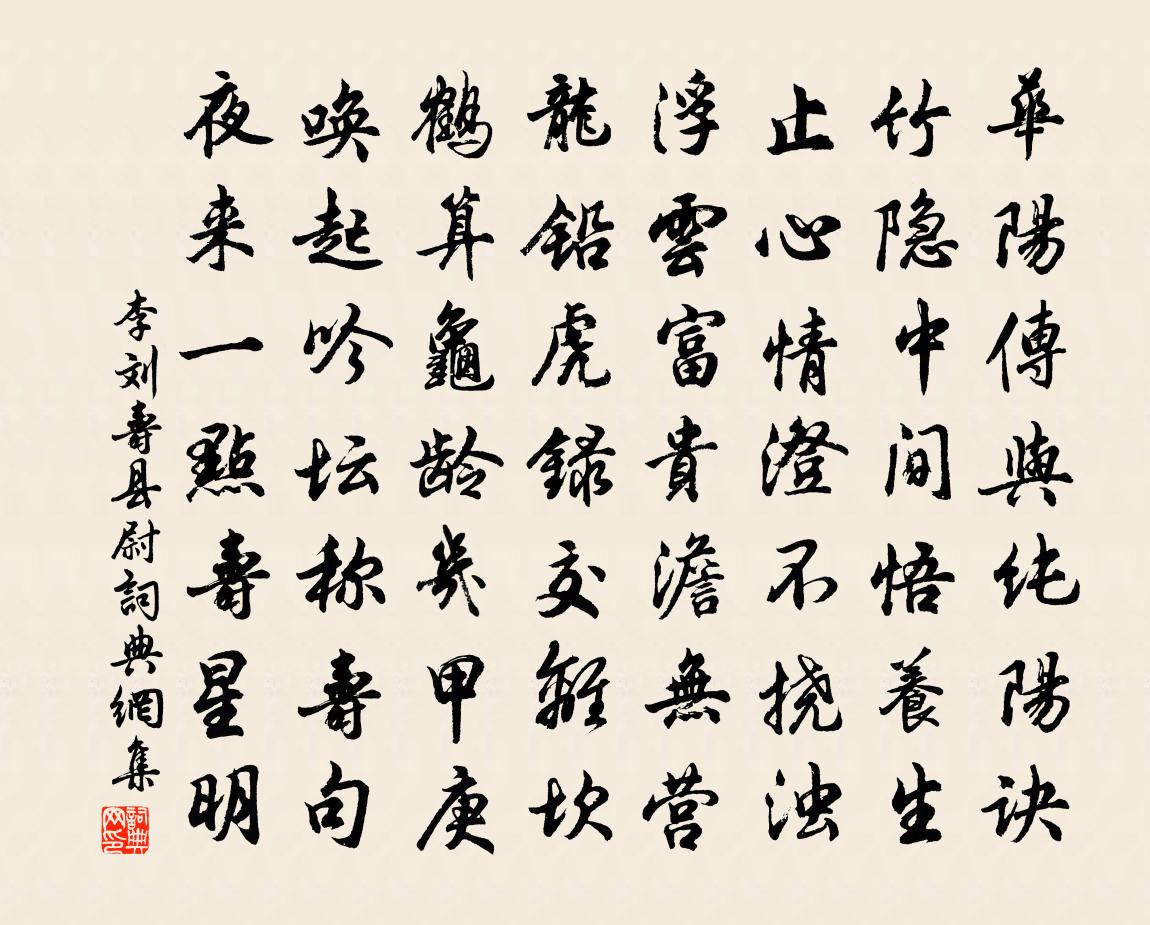 華陽傳與纯陽诀
竹隐中间悟養生
止心情澄不挠浊
浮雲富貴澹無营
龍鉛虎録交離坎
鶴算龜龄幾甲庚
唤起吟坛称壽句
夜来一點壽星明
李刘壽县尉詞典網集
詞典网印